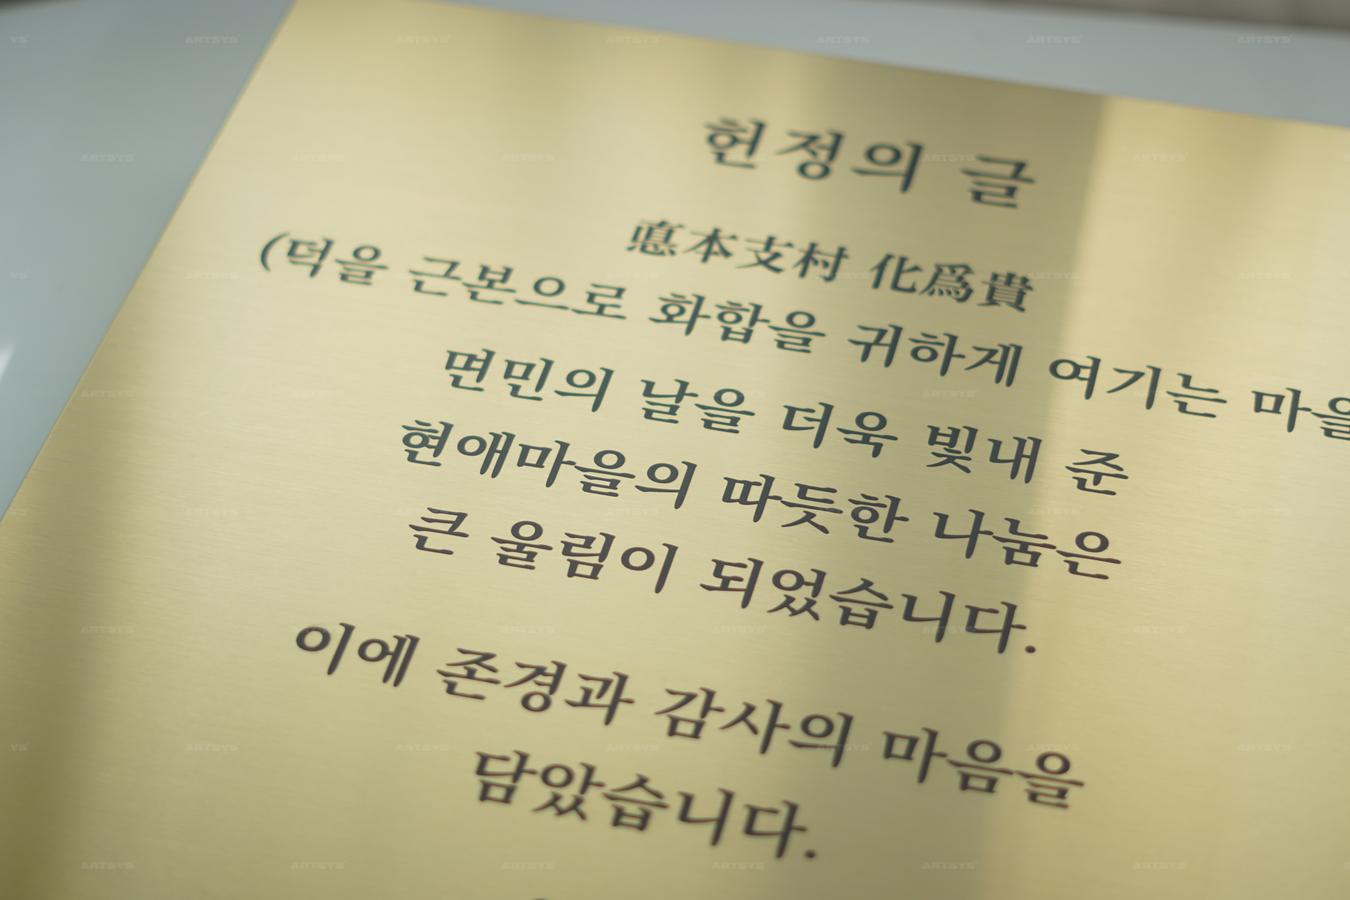 헌정의 글
悳本支村 化爲貴
(덕을 근본으로 화합을 귀하게 여기는 마을
면민의 날을 더욱 빛내 준
현애마을의 따듯한 나눔은
큰 울림이 되었습니다.
이에 존경과 감사의 마음을
담았습니다.
ARTSYS